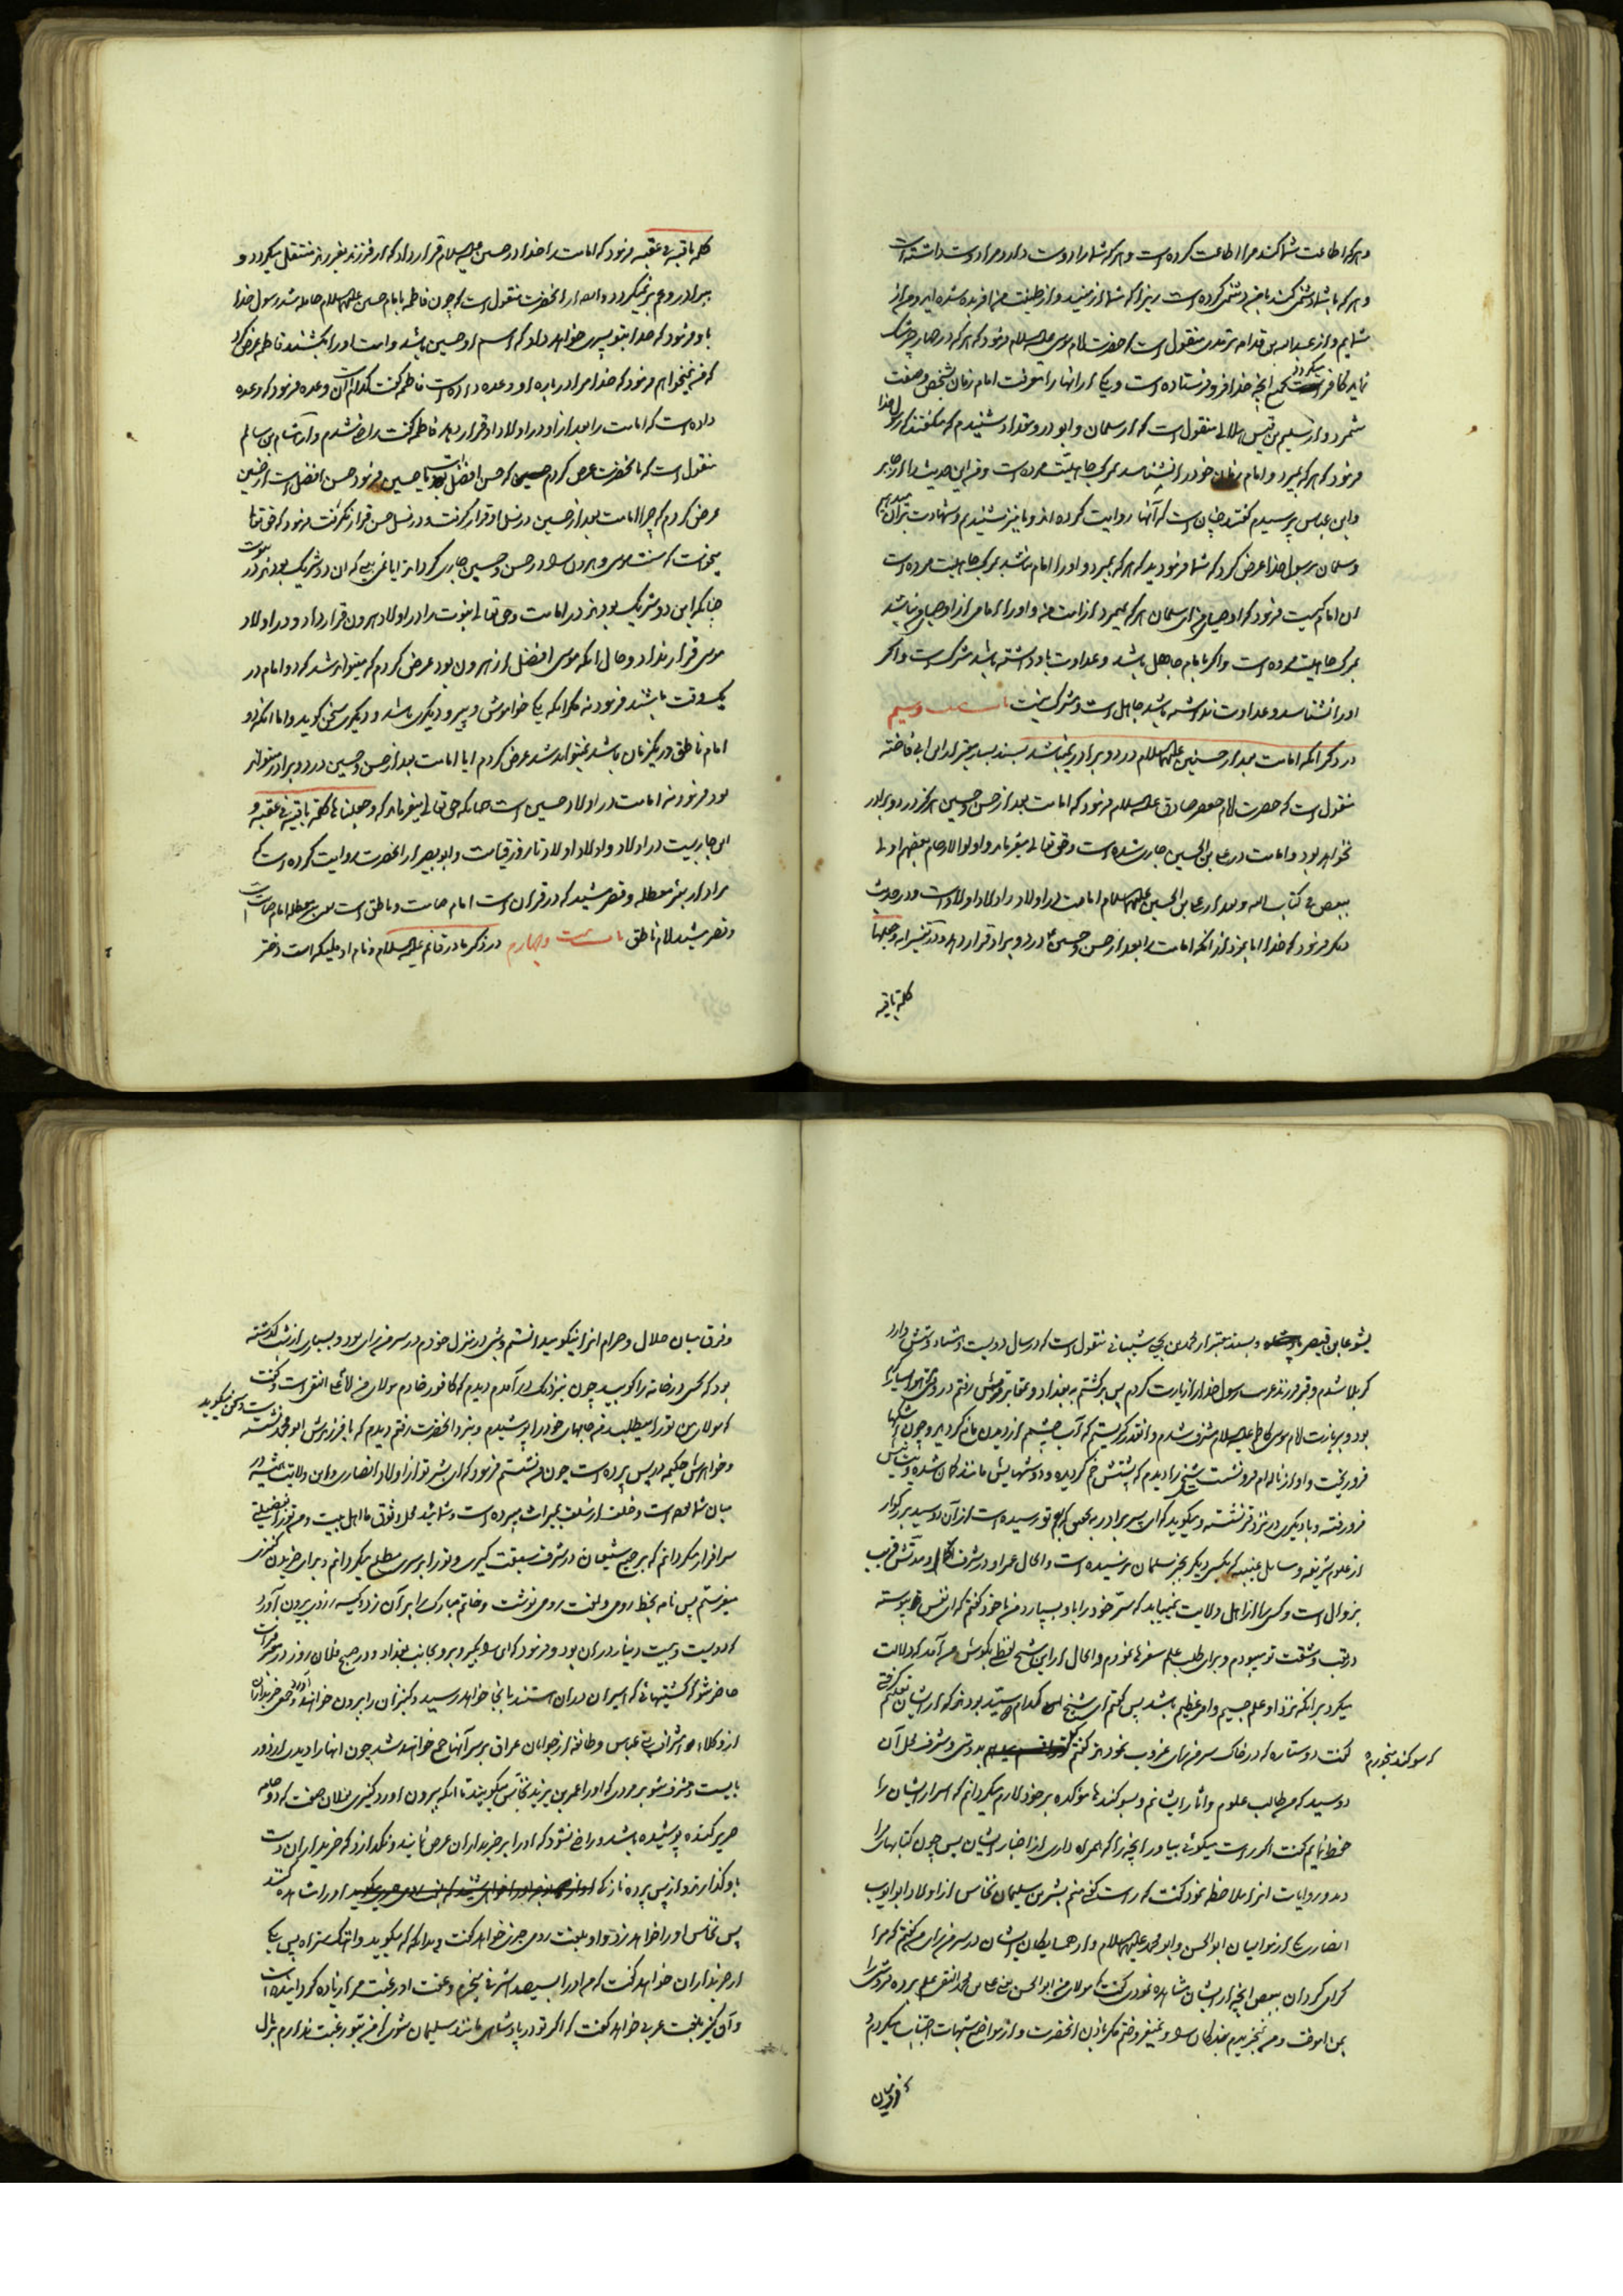 و هر که اطاعت شما کند مرا اطاعت کرده است و هر که شما را دوست دارد مرا دوست داشته است
و هر که با شما دشمنی کند با من دشمنی کرده است زیرا که شما از منید و از طینت من آفریده شده اید و من از
شمایم و از عبدالله بن قدامه ترمذی منقول است که حضرت امام موسی علیه السلام فرمود که هر که در چهار چیز شک
نماید کافر میگردد بجمیع آنچه خدا فرو فرستاده است و یکی از آنها را معرفت امام زمان بشخص و صفت
شمرد و از سلیم بن قیس هلالی منقول است که از سلمان و ابوذر و مقداد شنیدم که میگفتند که رسول خدا
فرمود که هر که بمیرد و امام زمان خود را نشناسد بمرگ جاهلیت مرده است و من این حدیث را از جابر
و ابن عباس پرسیدم گفتند چنان است که آنها روایت کرده اند و ما نیز شنیدیم و شهادت بر آن میدهیم
و سلمان برسول خدا عرض کرد که شما فرمودید که هر که بمیرد و او را امام نباشد بمرگ جاهلیت مرده است
این امام کیست فرمود که از اوصیای من ای سلمان هر که بمیرد از امت من و او را امامی از اوصیای من نباشد
بمرگ جاهلیت مرده است و اگر بامام جاهل باشد و عداوت باو داشته باشد مشرک است و اگر
او را نشناسد و عداوت نداشته باشد جاهل است و مشرک نیست باب بیست و سیم
در ذکر آنکه امامت بعد از حسنین علیهما السلام در دو برادر نمیباشد بسند معتبر از ابی فاخته
منقول است که حضرت امام جعفر صادق علیه السلام فرمود که امامت بعد از حسن و حسین هرگز در دو برادر
نخواهد بود و امامت در علی بن الحسین جاری شده است و حق تعالی میفرماید و اولوا الارحام بعضهم اولی
ببعض فی کتاب الله و بعد از علی بن الحسین علیهما السلام امامت در اولاد و اولاد اولاد است و در حدیث
دیگر فرمود که خدا ابا نمود از آنکه امامت را بعد از حسن و حسین در دو برادر قرار دهد و در تفسیر آیه و جعلها
کلمة باقیه
کلمة باقیة فی عقبه فرمود که امامت را خدا در حسین علیه السلام قرار داد که از فرزند بفرزند منتقل میگردد و
ببرادر و عم برنمیگردد و ایضا از آنحضرت منقول است که چون فاطمه بامام حسین علیهما السلام حامله شد رسول خدا
باو فرمود که خدا بتو پسری خواهد داد که اسم او حسین باشد و امت او را بکشند فاطمه عرض کرد
که من نمیخواهم فرمود که خدا مرا درباره او وعده داده است فاطمه گفت کدام است آن وعده فرمود که وعده
داده است که امامت را بعد از او در اولاد او قرار دهد فاطمه گفت راضی شدم و از هشام بن سالم
منقول است که بآنحضرت عرض کردم که حسن افضل است یا حسین فرمود حسن افضل است از حسین
عرض کردم که چرا امامت بعد از حسین در نسل او قرار گرفت و در نسل حسن قرار نگرفت فرمود که حق تعالی
میخواست که سنت موسی و هرون را در حسن و حسین جاری گرداند آیا نمی بینی که آن دو شریک بودند در نبوت
چنانکه این دو شریک بودند در امامت و حق تعالی نبوت را در اولاد هرون قرار داد و در اولاد
موسی قرار نداد و حال آنکه موسی افضل از هرون بود عرض کردم که میتواند شد که دو امام در
یک وقت باشند فرمود نه مگر آنکه یکی خاموش و پیرو دیگری باشد و دیگری سخن گوید و اما آنکه دو
امام ناطق در یک زمان باشد نمیتواند شد عرض کردم آیا امامت بعد از حسن و حسین در دو برادر میتواند
بود فرمود نه امامت در اولاد حسین است چنانکه حق تعالی میفرماید که و جعلناها کلمة باقیة فی عقبه و
این جاریست در اولاد و اولاد اولاد تا روز قیامت و ابو بصیر از آنحضرت روایت کرده است که
مراد از بئر معطله و قصر مشید که در قرآن است امام صامت و ناطق است یعنی بئر معطله امام صامت است
و قصر مشید امام ناطق باب بیست و چهارم در ذکر مادر قائم علیه السلام و نام او ملیکه است دختر
یشوعا بن قیصر و بسند معتبر از محمد بن یحیی شیبانی منقول است که در سال دویست و هشتاد و شش وارد
کربلا شدم و قبر فرزند غریب رسول خدا را زیارت کردم پس برگشتم به بغداد و بمقابر قریش رفتم در وقتی که هوا بسیار گرم
بود و بزیارت امام موسی کاظم علیه السلام مشرف شدم و آنقدر گریستم که آب چشمم از دیدن مانع گردید و چون اشکها
فرو ریخت و آواز ناله ام فرو نشست شیخی را دیدم که پشتش خم گردیده و دوشهایش مانند کمان شده و
فرو رفته و با دیگری در نزد قبر نشسته و میگوید که ای پسر برادر عم تو رسیده است از آن دو سید بزرگوار
از علوم شریفه و مسایل غیبیه که بکسی دیگر بجز سلمان نرسیده است و الحال عمر او در شرف و مدتش قریب
بزوال است و کسی را از اهل ولایت نمییابد که سر خود را باو بسپارد من با خود گفتم که ای نفس پیوسته
در تعب و مشقت تو میبودم و برای طلب علم سفرها نمودم و الحال از این شیخ لفظی بگوشم می آمد که دلالت
میکرد بر آنکه نزد او علم جسیم و امر عظیم باشد پس گفتم ای شیخ کدام دو سید بودند که از ایشان
گفت دو ستاره که در خاک سر من رای غروب نمودند گفتم که سوگند میخورم بدوستی و شرف محل آن
دو سید که من طالب علوم و آثار ایشانم و بسوگندهای مؤکده بر خود لازم میگردانم که اسرار ایشان را
حفظ نمایم گفت اگر راست میگوئی بیاور آنچه را که همراه داری از اخبار ایشان پس چون کتابهای مرا
دید و روایات آنرا ملاحظه نمود گفت که راست گفتی منم بشر بن سلیمان نخاس از اولاد ابو ایوب
انصاری یکی از موالیان ابو الحسن و ابو محمد علیهما السلام و از همسایگان ایشان در سر من رای من گفتم که مرا
گرامی گردان ببعضی آنچه از ایشان مشاهده نمودی گفت که مولای من ابو الحسن علی بن محمد النقی علم برده فروشی را
بمن آموخت و من نمیخریدم بندگان را و نمیفروختم مگر باذن آنحضرت و از مواضع شبهات اجتناب میکردم و
و فرق میان حلال و حرام آنرا نیکو میدانستم و شبی در منزل خودم در سر من رای بودم و بسیاری از شب گذشته
بود که کسی در خانه را کوبید چون بنزدیک در آمدم دیدم که کافور خادم مولای من امام علی النقی است و گفت
که مولای من تو را میطلبد من جامهای خود را پوشیدم و بنزد آنحضرت رفتم دیدم که با فرزندش ابو محمد نشسته است و سخن میگوید
و خواهرش حکیمه در پس پرده است چون بنشستم فرمود که ای بشر تو از اولاد انصاری و این ولایت همیشه در
میان شما بوده است و خلف از سلف بمیراث میبرده است و شمائید محل وثوق ما اهل بیت و من تو را بفضیلتی
سرافراز میگردانم که بر جمیع شیعیان در شرف سبقت گیری و تو را بر سری مطلع میگردانم و برای خریدن کنیزی
میفرستم پس نامه بخط رومی و لغت رومی نوشت و خاتم مبارک را بر آن زد و کیسه زری بیرون آورد
که دویست و بیست دینار در آن بود و فرمود که این را بگیر و برو بجانب بغداد و در صبح فلان روز در معبر فرات
حاضر شو که کشتیهائی که اسیران در آن هستند بآنجا خواهد رسید و کنیزان را بیرون خواهند آورد و جمعی خریداران
از وکلاء اشراف بنی عباس و طائفه از جوانان عراق بر سر آنها جمع خواهند شد چون آنها را دیدی از دور
بایست و مشرف شو بر مردی که او را عمر بن یزید نخاس میگویند تا آنکه بیرون آورد کنیزی بفلان صفت که دو جامه
حریر کنده پوشیده باشد و راضی نشود که او را بر خریداران عرض نمایند و نگذارد که خریداران دست
باو گذارند و از پس پرده نازکی او را مشاهده کنند
پس نخاس او را خواهد زد و او بلغت رومی چیزی خواهد گفت و بدانکه که میگوید وا هتک ستراه پس یکی
از خریداران خواهد گفت که من او را بسیصد اشرفی میخرم و عفت او رغبت مرا زیاده گردانیده است
و آن کنیز بلغت عربی خواهد گفت که اگر تو در پادشاهی مانند سلیمان شوی که من بتو رغبت ندارم بر مال